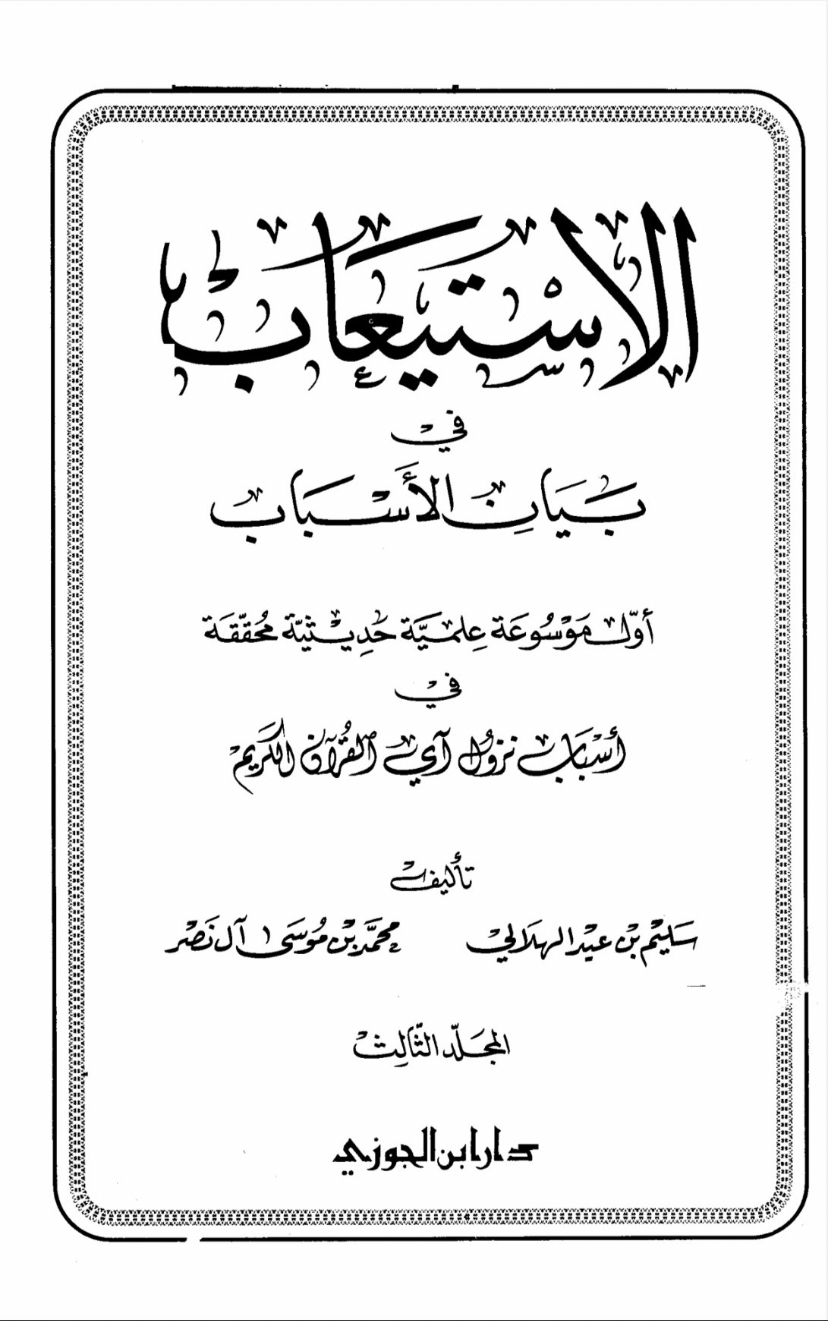 الاستيعاب
في
بَيَانِ الأَسْبَاب
أوّل مَوْسُوعَة عِلميَّة حَدِيثيَّة محُقَّقَة
في
أسْبَاب نزول آي القُرآن الكَريم
تأليف
سَليم بن عيد الهلالي محمَّد بن مُوسَى آل نَصْر
المجَلّد الثّالِث
دار ابن الجوزي